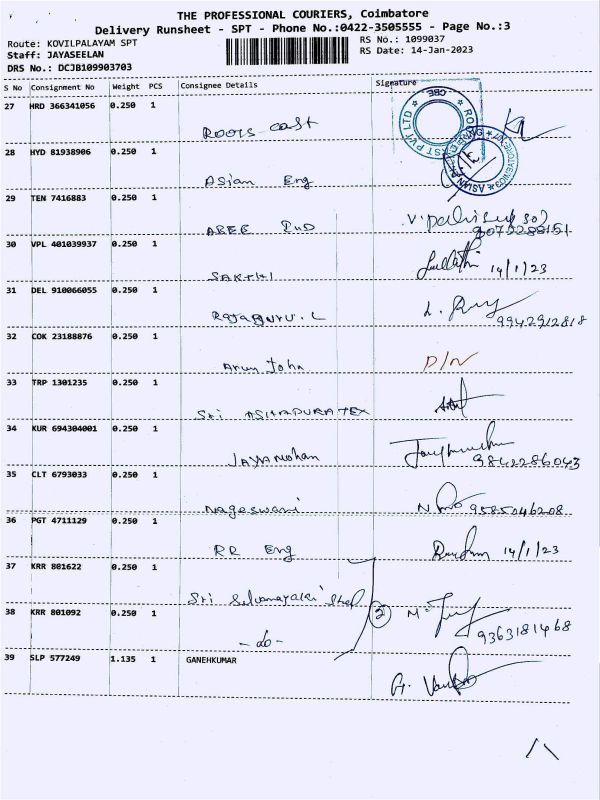 THE PROFESSIONAL COURIERS, Coimbatore
Delivery Runsheet - SPT - Phone No.:0422-3505555 - Page No.:3
Route: KOVILPALAYAM SPT
RS No.: 1099037
Staff: JAYASEELAN
RS Date: 14-Jan-2023
DRS No.: DCJB109903703
S No Consignment No Weight PCS Consignee Details Signature
27 HRD 366341056 0.250 1
Roots cast
28 HYD 81938906 0.250 1
Asian Eng
29 TEN 7416883 0.250 1
9075288151
30 VPL 401039937 0.250 1
SAKTHI 14/1/23
31 DEL 910066055 0.250 1
Rajaguru. L 9942912818
32 COK 23188876 0.250 1
Arun John D/N
33 TRP 1301235 0.250 1
Sri ASHAPURA TEX
34 KUR 694304001 0.250 1
JAYAMohan 9842286043
35 CLT 6793033 0.250 1
Nageswari 9585046208
36 PGT 4711129 0.250 1
RR Eng 14/1/23
37 KRR 801622 0.250 1
Sri Selvanayaki Steel
38 KRR 801092 0.250 1
2
- do - 9363181468
39 SLP 577249 1.135 1 GANEHKUMAR